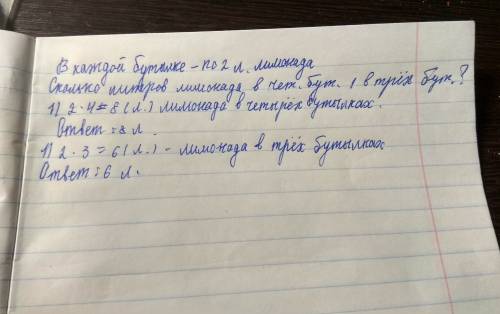 В каждой бутылке – по 2 л. лимонада
Сколько литров лимонада в чет. бут. , в трёх бут.?
1) 2 · 4 = 8 (л.) лимонада в четырёх бутылках.
Ответ: 8 л.
1) 2 · 3 = 6 (л.) – лимонада в трёх бутылках
Ответ: 6 л.